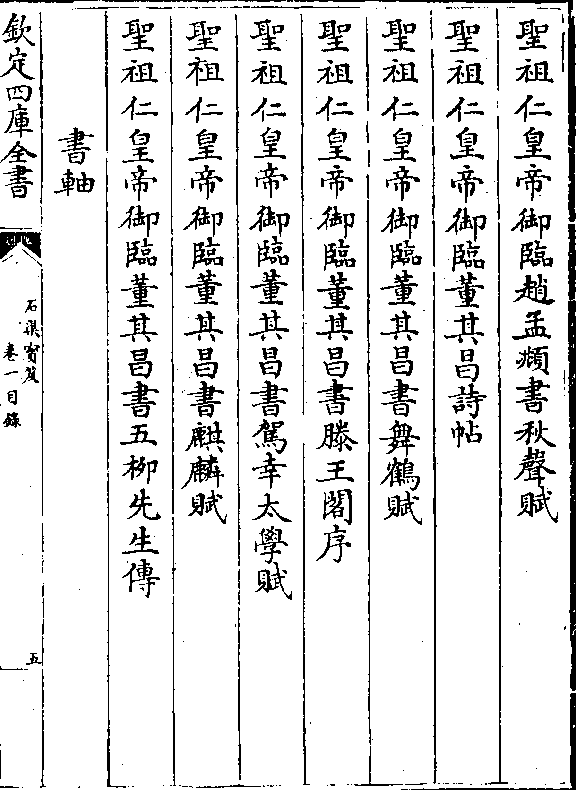 聖祖仁皇帝御臨趙孟頫書秋聲賦
聖祖仁皇帝御臨董其昌詩帖
聖祖仁皇帝御臨董其昌書舞鶴賦
聖祖仁皇帝御臨董其昌書滕王閣序
聖祖仁皇帝御臨董其昌書駕幸太學賦
聖祖仁皇帝御臨董其昌書麒麟賦
聖祖仁皇帝御臨董其昌書五柳先生傳
書軸
欽定四庫全書
石渠寶笈
卷一目錄
五